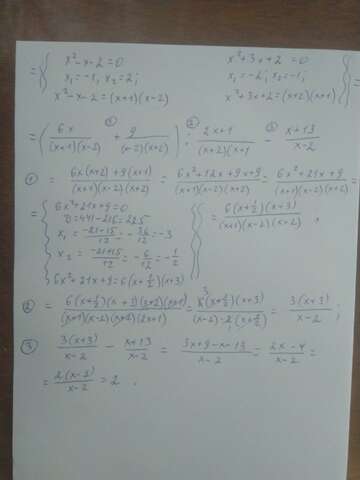 = { x² - x - 2 = 0
x₁ = -1, x₂ = 2;
x² - x - 2 = (x+1)(x-2)
x² + 3x + 2 = 0
x₁ = -2; x₂ = -1,
x² + 3x + 2 = (x+2)(x+1) }
= ( 6x / (x+1)(x-2) ① + 9 / (x-2)(x+2) ) ② : 2x+1 / (x+2)(x+1 ③ - x+13 / x-2
① = 6x(x+2) + 9(x+1) / (x+1)(x-2)(x+2) = 6x² + 12x + 9x + 9 / (x+1)(x-2)(x+2) = 6x² + 21x + 9 / (x+1)(x-2)(x+2) =
= { 6x² + 21x + 9 = 0
D = 441 - 216 = 225
x₁ = -21-15 / 12 = -36 / 12 = -3
x₂ = -21+15 / 12 = -6 / 12 = -1 / 2
6x² + 21x + 9 = 6(x+½)(x+3) }
= 6(x+½)(x+3) / (x+1)(x-2)(x+2) ,
② = 6(x+½)(x+3)(x+2)(x+1) / (x+1)(x-2)(x+2)(2x+1) = 6³(x+½)(x+3) / (x-2)·2₁(x+½) = 3(x+3) / x-2 ;
③ 3(x+3) / x-2 - x+13 / x-2 = 3x+9-x-13 / x-2 = 2x-4 / x-2 =
= 2(x-2) / x-2 = 2 .